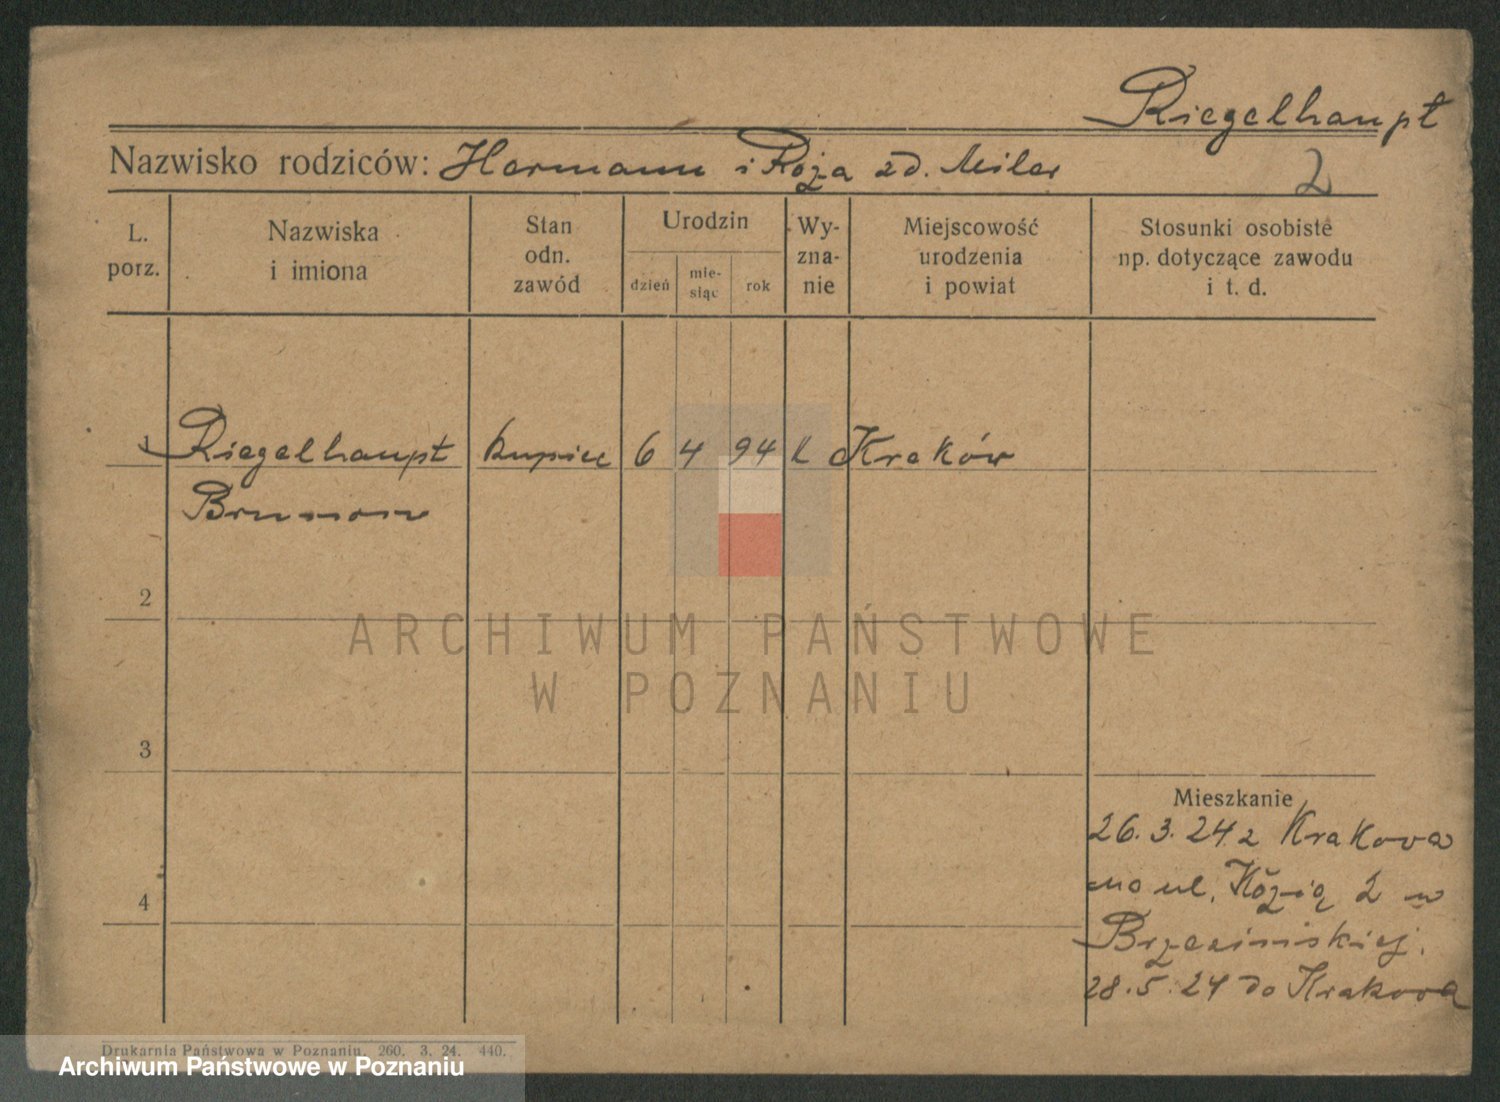 Riegelhaupt
Nazwisko rodziców: Hermann i Róża zd. Miler
2
L. porz.
Nazwiska i imiona
Stan odn. zawód
Urodzin
dzień
mie-siąc
rok
Wy-zna-nie
Miejscowość urodzenia i powiat
Stosunki osobiste np. dotyczące zawodu i t. d.
1 Riegelhaupt kupiec 6 4 94 k Kraków
Brunon
2
3
4
Mieszkanie
26. 3. 24 z Krakowa
na ul. Kozią 2 u
Brzezińskiej.
28. 5. 24 do Krakowa
Drukarnia Państwowa w Poznaniu. 260. 3. 24. 440.
ARCHIWUM PAŃSTWOWE
W POZNANIU
Archiwum Państwowe w Poznaniu